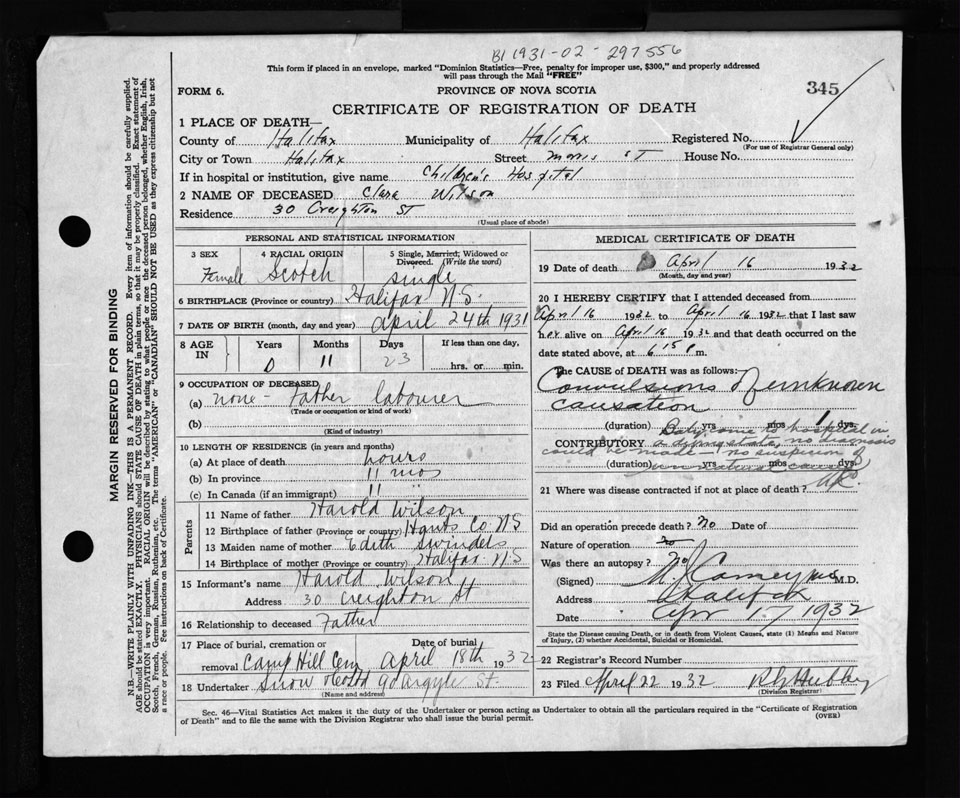 BI 1931-02-297556
This form if placed in an envelope, marked "Dominion Statistics—Free, penalty for improper use, $300," and properly addressed
will pass through the Mail "FREE"
FORM 6.
PROVINCE OF NOVA SCOTIA
345
CERTIFICATE OF REGISTRATION OF DEATH
1 PLACE OF DEATH—
County of Halifax Municipality of Halifax Registered No.
(For use of Registrar General only)
City or Town Halifax Street Morris ST House No.
If in hospital or institution, give name Children's Hospital
2 NAME OF DECEASED Clara Wilson
Residence 30 Creighton ST
(Usual place of abode)
PERSONAL AND STATISTICAL INFORMATION
3 SEX 4 RACIAL ORIGIN 5 Single, Married, Widowed or
Divorced. (Write the word)
Female Scotch Single
6 BIRTHPLACE (Province or country) Halifax N.S.
7 DATE OF BIRTH (month, day and year) April 24th 1931
8 AGE IN Years Months Days If less than one day,
0 11 23 hrs. or min.
9 OCCUPATION OF DECEASED
(a) none - Father labourer
(Trade or occupation or kind of work)
(b)
(Kind of industry)
10 LENGTH OF RESIDENCE (in years and months)
(a) At place of death hours
(b) In province 11 mos
(c) In Canada (if an immigrant) 11 "
Parents
11 Name of father Harold Wilson
12 Birthplace of father (Province or country) Hants Co. N.S
13 Maiden name of mother Edith Swindels
14 Birthplace of mother (Province or country) Halifax N.S
15 Informant's name Harold Wilson
Address 30 Creighton St
16 Relationship to deceased Father
17 Place of burial, cremation or Date of burial
removal Camp Hill Cem April 18th 1932
18 Undertaker Snow & Co Ltd 90 Argyle St.
(Name and address)
MEDICAL CERTIFICATE OF DEATH
19 Date of death April 16 1932
(Month, day and year)
20 I HEREBY CERTIFY that I attended deceased from
April 16 1932 to April 16 1932 that I last saw
her alive on April 16 1932 and that death occurred on the
date stated above, at 6 15 P m.
The CAUSE of DEATH was as follows:
Convulsions of unknown
causation
(duration) yrs mos 1 dys
Baby came to hospital in
CONTRIBUTORY a dying state, no diagnosis
could be made - no suspicion of
(duration) yrs mos dys
unnatural causes
21 Where was disease contracted if not at place of death?
Did an operation precede death? No Date of
Nature of operation no
Was there an autopsy? No
(Signed) M.D.
Address Halifax
Date Apr 17 1932
State the Disease causing Death, or in death from Violent Causes, state (1) Means and Nature
of Injury, (2) whether Accidental, Suicidal or Homicidal.
22 Registrar's Record Number
23 Filed April 22 1932
(Division Registrar)
Sec. 46—Vital Statistics Act makes it the duty of the Undertaker or person acting as Undertaker to obtain all the particulars required in the "Certificate of Registration
of Death" and to file the same with the Division Registrar who shall issue the burial permit.
(OVER)
MARGIN RESERVED FOR BINDING
N.B.—WRITE PLAINLY WITH UNFADING INK—THIS IS A PERMANENT RECORD. Every item of information should be carefully supplied.
AGE should be stated EXACTLY. PHYSICIANS should STATE CAUSE OF DEATH in plain terms, so that it may be properly classified. Exact statement of
OCCUPATION is very important. RACIAL ORIGIN will be described by stating to what people or race the deceased person belonged, whether English, Irish,
Scotch, French, German, Russian, Ruthenian, etc. The terms "AMERICAN" or "CANADIAN" SHOULD NOT BE USED as they express citizenship but not
a race or people. See instructions on back of Certificate.